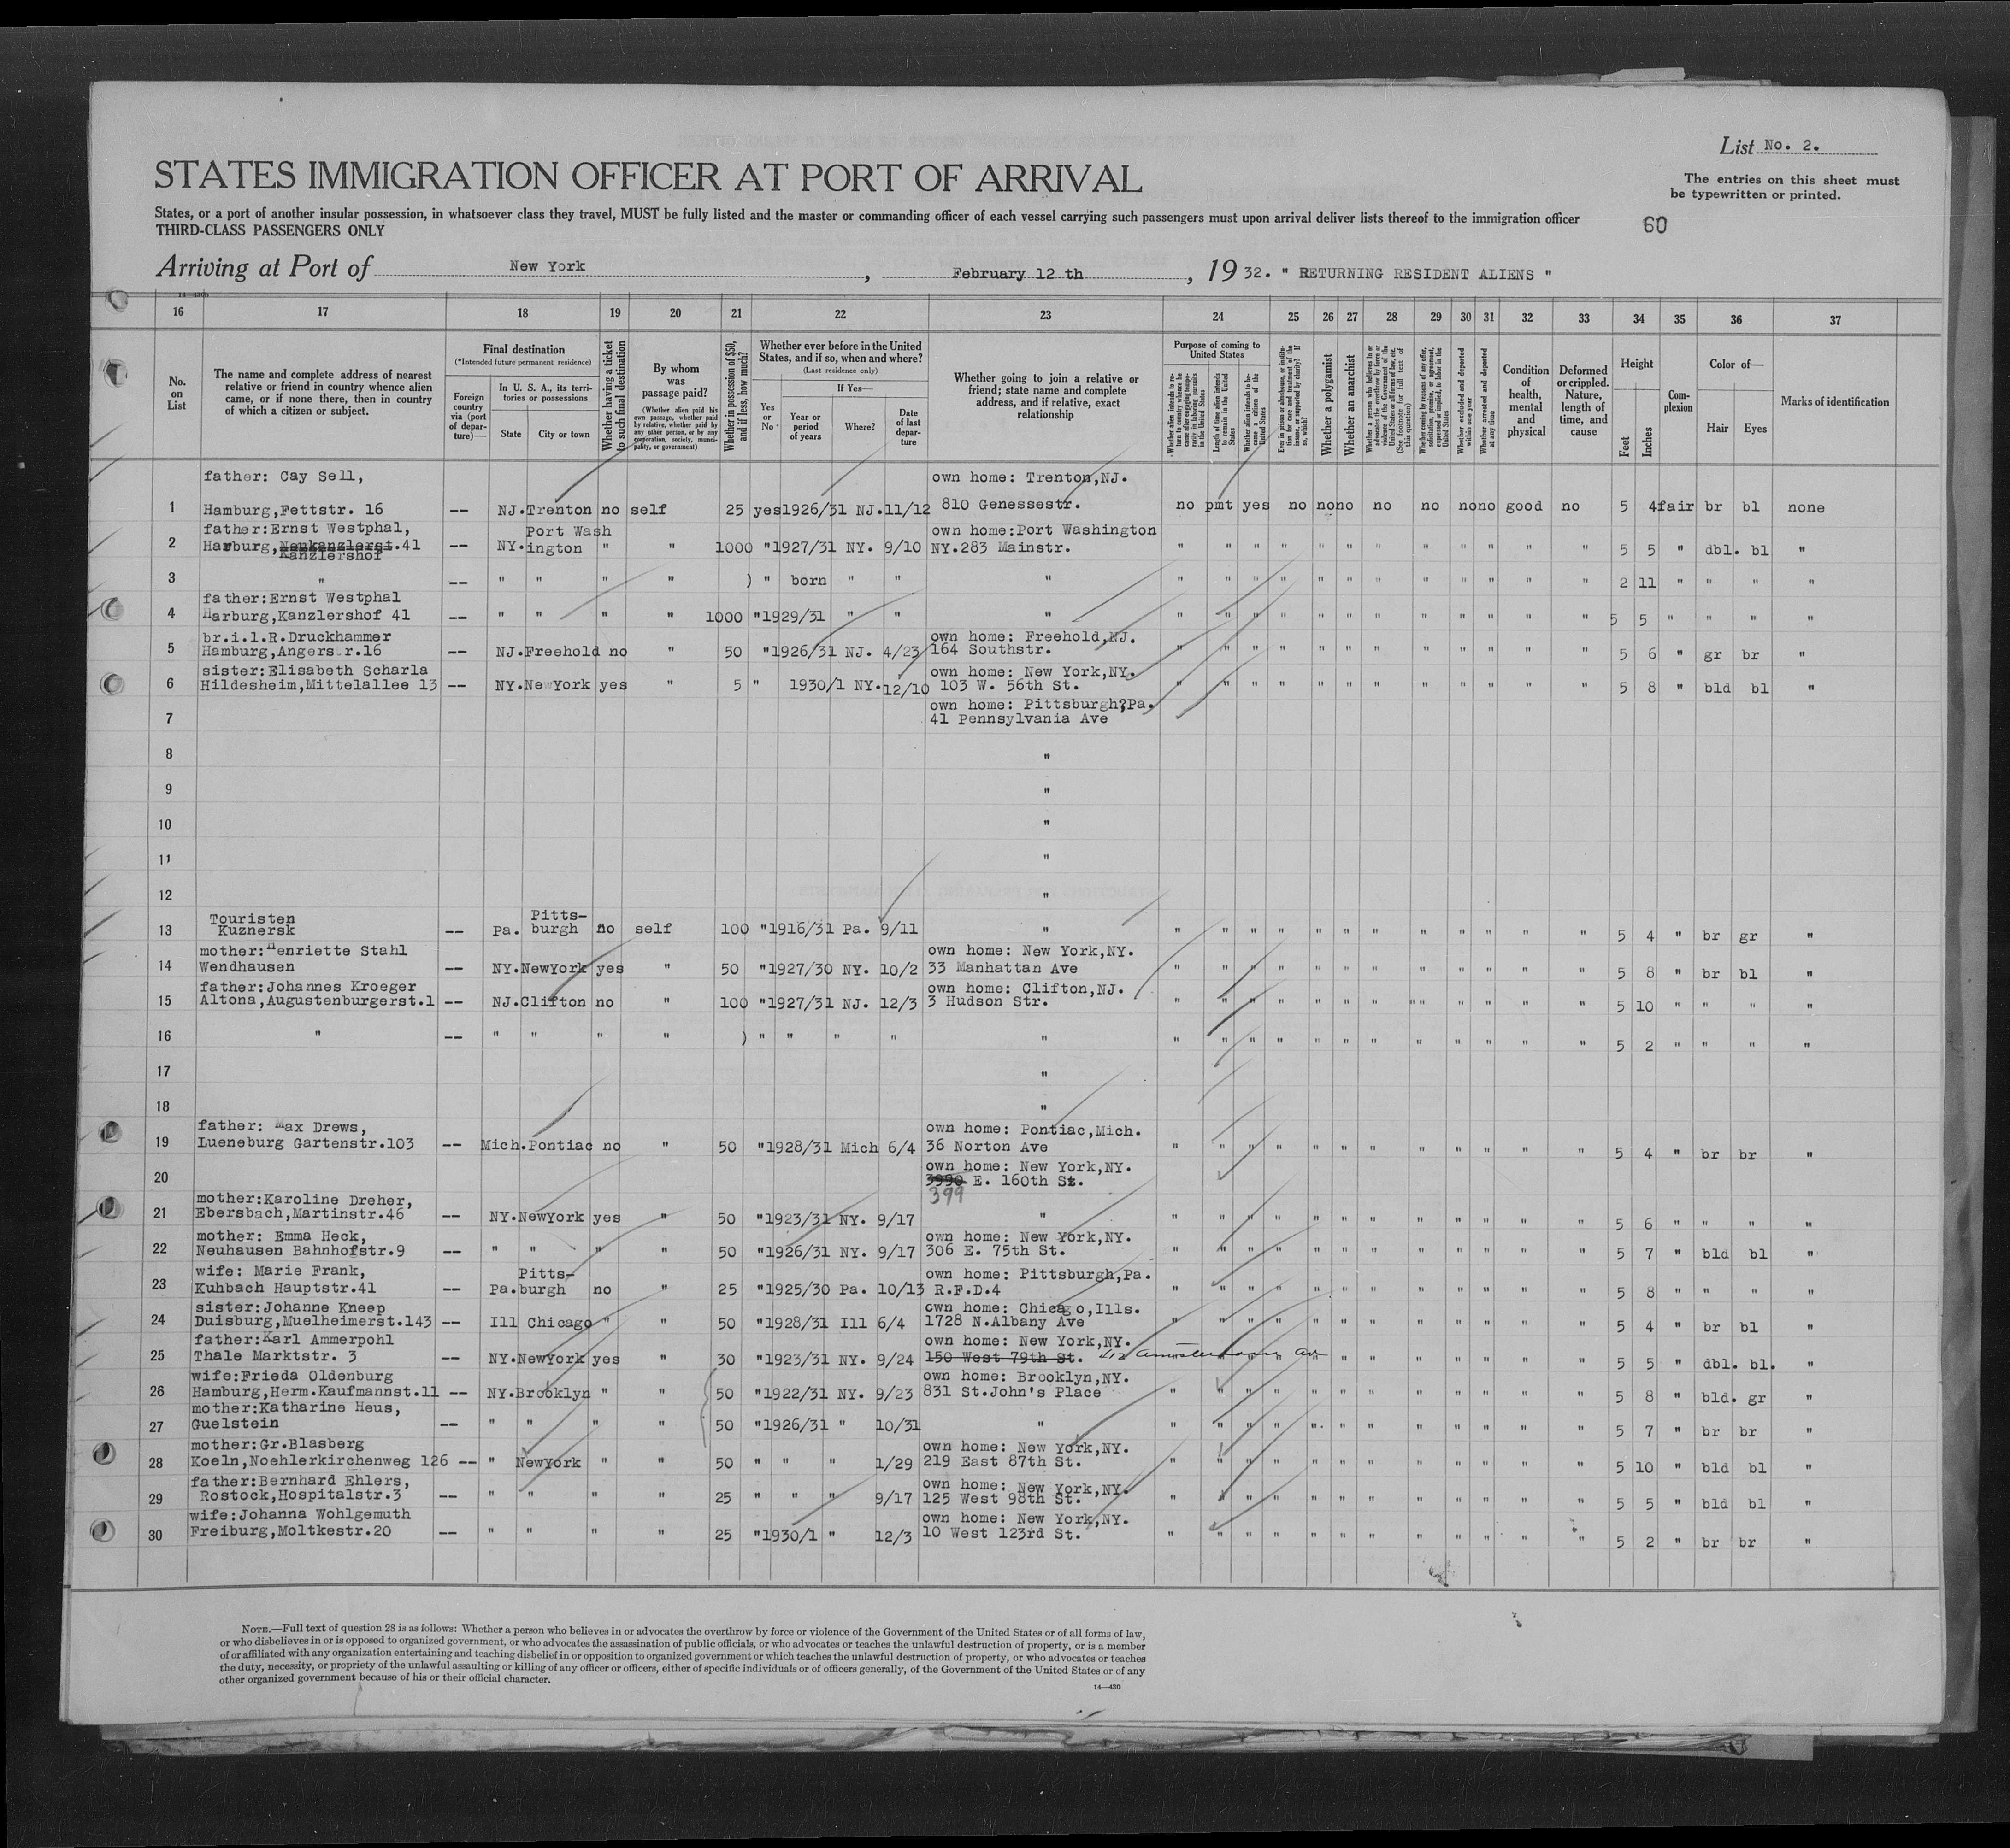 List No. 2.
STATES IMMIGRATION OFFICER AT PORT OF ARRIVAL
The entries on this sheet must
be typewritten or printed.
States, or a port of another insular possession, in whatsoever class they travel, MUST be fully listed and the master or commanding officer of each vessel carrying such passengers must upon arrival deliver lists thereof to the immigration officer
THIRD-CLASS PASSENGERS ONLY
60
Arriving at Port of New York , February 12 th , 19 32. " RETURNING RESIDENT ALIENS "
16 17 18 19 20 21 22 23 24 25 26 27 28 29 30 31 32 33 34 35 36 37
No. on List
The name and complete address of nearest relative or friend in country whence alien came, or if none there, then in country of which a citizen or subject.
Final destination
(*Intended future permanent residence)
Foreign country via (port of departure)—
In U. S. A., its territories or possessions
State
City or town
Whether having a ticket to such final destination
By whom was passage paid?
(Whether alien paid his own passage, whether paid by relative, whether paid by any other person, or by any corporation, society, municipality, or government)
Whether in possession of $50, and if less, how much?
Whether ever before in the United States, and if so, when and where?
(Last residence only)
Yes or No
If Yes—
Year or period of years
Where?
Date of last departure
Whether going to join a relative or friend; state name and complete address, and if relative, exact relationship
Purpose of coming to United States
Length of time alien intends to remain in the United States
Whether alien intends to become a citizen of the United States
Whether a polygamist
Whether an anarchist
Whether excluded and deported within one year
Whether arrested and deported at any time
Condition of health, mental and physical
Deformed or crippled. Nature, length of time, and cause
Height
Feet
Inches
Complexion
Color of—
Hair
Eyes
Marks of identification
father: Cay Sell, own home: Trenton,NJ.
1 Hamburg,Fettstr. 16 -- NJ. Trenton no self 25 yes 1926/31 NJ. 11/12 810 Genessestr. no pmt yes no no no no no no no good no 5 4 fair br bl none
father:Ernst Westphal, Port Wash own home:Port Washington
2 Harburg,Neukanzlerst.41 -- NY. ington " " 1000 " 1927/31 NY. 9/10 NY.283 Mainstr. " " " " " " " " " " " " 5 5 " dbl. bl "
Kanzlershof
3 " -- " " " " ) " born " " " " " " " " " " " " " " " 2 11 " " " "
father:Ernst Westphal
4 Harburg,Kanzlershof 41 -- " " " " 1000 " 1929/31 " " " " " " " " " " " " " " " 5 5 " " " "
br.i.l.R.Druckhammer own home: Freehold,NJ.
5 Hamburg,Angerstr.16 -- NJ. Freehold no " 50 " 1926/31 NJ. 4/23 164 Southstr. " " " " " " " " " " " " 5 6 " gr br "
sister:Elisabeth Scharla own home: New York,NY.
6 Hildesheim,Mittelallee 13 -- NY. NewYork yes " 5 " 1930/1 NY. 12/10 103 W. 56th St. " " " " " " " " " " " " 5 8 " bld bl "
own home: Pittsburgh?Pa.
7 41 Pennsylvania Ave
8 "
9 "
10 "
11 "
12 "
Touristen Pitts-
13 Kuznersk -- Pa. burgh no self 100 " 1916/31 Pa. 9/11 " " " " " " " " " " " " " 5 4 " br gr "
mother:Henriette Stahl own home: New York,NY.
14 Wendhausen -- NY. NewYork yes " 50 " 1927/30 NY. 10/2 33 Manhattan Ave " " " " " " " " " " " " 5 8 " br bl "
father:Johannes Kroeger own home: Clifton,NJ.
15 Altona,Augustenburgerst.1 -- NJ. Clifton no " 100 " 1927/31 NJ. 12/3 3 Hudson Str. " " " " " " " "" " " " " 5 10 " " " "
16 " -- " " " " ) " " " " " " " " " " " " " " " " " 5 2 " " " "
17 "
18 "
father: Max Drews, own home: Pontiac,Mich.
19 Lueneburg Gartenstr.103 -- Mich. Pontiac no " 50 " 1928/31 Mich 6/4 36 Norton Ave " " " " " " " " " " " " 5 4 " br br "
own home: New York,NY.
20 3990 E. 160th St.
399
mother:Karoline Dreher,
21 Ebersbach,Martinstr.46 -- NY. NewYork yes " 50 " 1923/31 NY. 9/17 " " " " " " " " " " " " " 5 6 " " " "
mother: Emma Heck, own home: New York,NY.
22 Neuhausen Bahnhofstr.9 -- " " " " 50 " 1926/31 NY. 9/17 306 E. 75th St. " " " " " " " " " " " " 5 7 " bld bl "
wife: Marie Frank, Pitts- own home: Pittsburgh,Pa.
23 Kuhbach Hauptstr.41 -- Pa. burgh no " 25 " 1925/30 Pa. 10/13 R.F.D.4 " " " " " " " " " " " " 5 8 " " " "
sister:Johanne Kneep own home: Chicago,Ills.
24 Duisburg,Muelheimerst.143 -- Ill Chicago " " 50 " 1928/31 Ill 6/4 1728 N.Albany Ave " " " " " " " " " " " " 5 4 " br bl "
father:Karl Ammerpohl own home: New York,NY.
25 Thale Marktstr. 3 -- NY. NewYork yes " 30 " 1923/31 NY. 9/24 150 West 79th St. Amsterdam Av " " " " " " " " " 5 5 " dbl. bl. "
wife:Frieda Oldenburg own home: Brooklyn,NY.
26 Hamburg,Herm.Kaufmannst.11 -- NY. Brooklyn " " 50 " 1922/31 NY. 9/23 831 St.John's Place " " " " " " " " " " " " 5 8 " bld. gr "
mother:Katharine Heus,
27 Guelstein -- " " " " 50 " 1926/31 " 10/31 " " " " " " " " " " " " " 5 7 " br br "
mother:Gr.Blasberg own home: New York,NY.
28 Koeln,Noehlerkirchenweg 126 -- " Newyork " " 50 " " " 1/29 219 East 87th St. " " " " " " " " " " " " 5 10 " bld bl "
father:Bernhard Ehlers, own home: New York,NY.
29 Rostock,Hospitalstr.3 -- " " " " 25 " " " 9/17 125 West 98th St. " " " " " " " " " " " " 5 5 " bld bl "
wife:Johanna Wohlgemuth own home: New York,NY.
30 Freiburg,Moltkestr.20 -- " " " " 25 " 1930/1 " 12/3 10 West 123rd St. " " " " " " " " " " " " 5 2 " br br "
NOTE.—Full text of question 28 is as follows: Whether a person who believes in or advocates the overthrow by force or violence of the Government of the United States or of all forms of law,
or who disbelieves in or is opposed to organized government, or who advocates the assassination of public officials, or who advocates or teaches the unlawful destruction of property, or is a member
of or affiliated with any organization entertaining and teaching disbelief in or opposition to organized government or which teaches the unlawful destruction of property, or who advocates or teaches
the duty, necessity, or propriety of the unlawful assaulting or killing of any officer or officers, either of specific individuals or of officers generally, of the Government of the United States or of any
other organized government because of his or their official character.
14—430